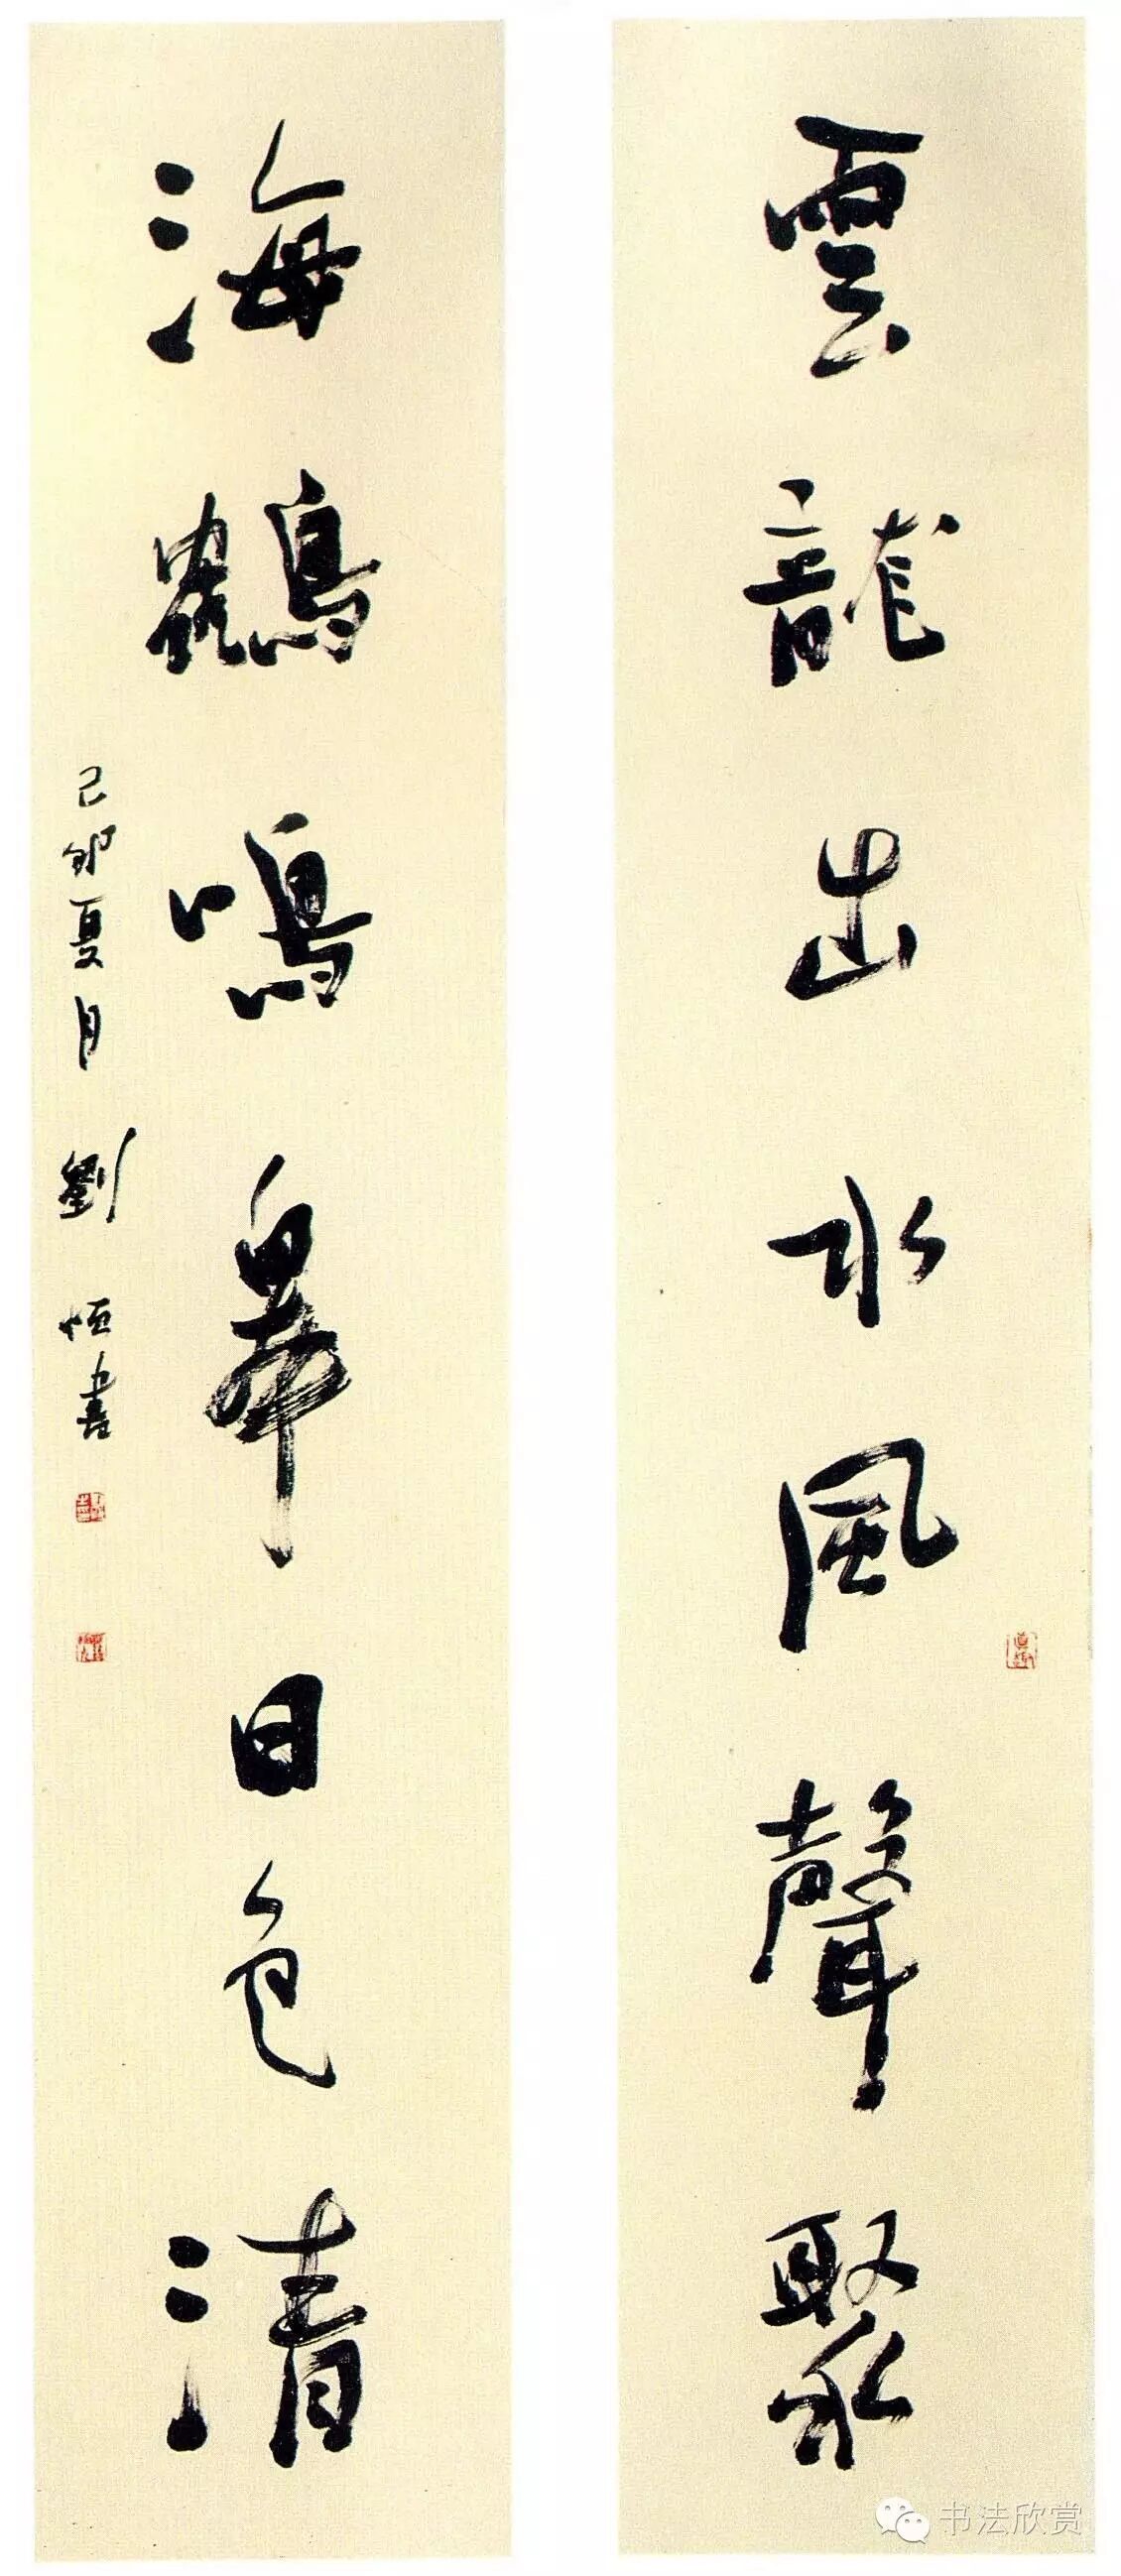 雲龍出水風聲聚
海鶴鳴皋日色清
己卯夏月劉恒書
书法欣赏